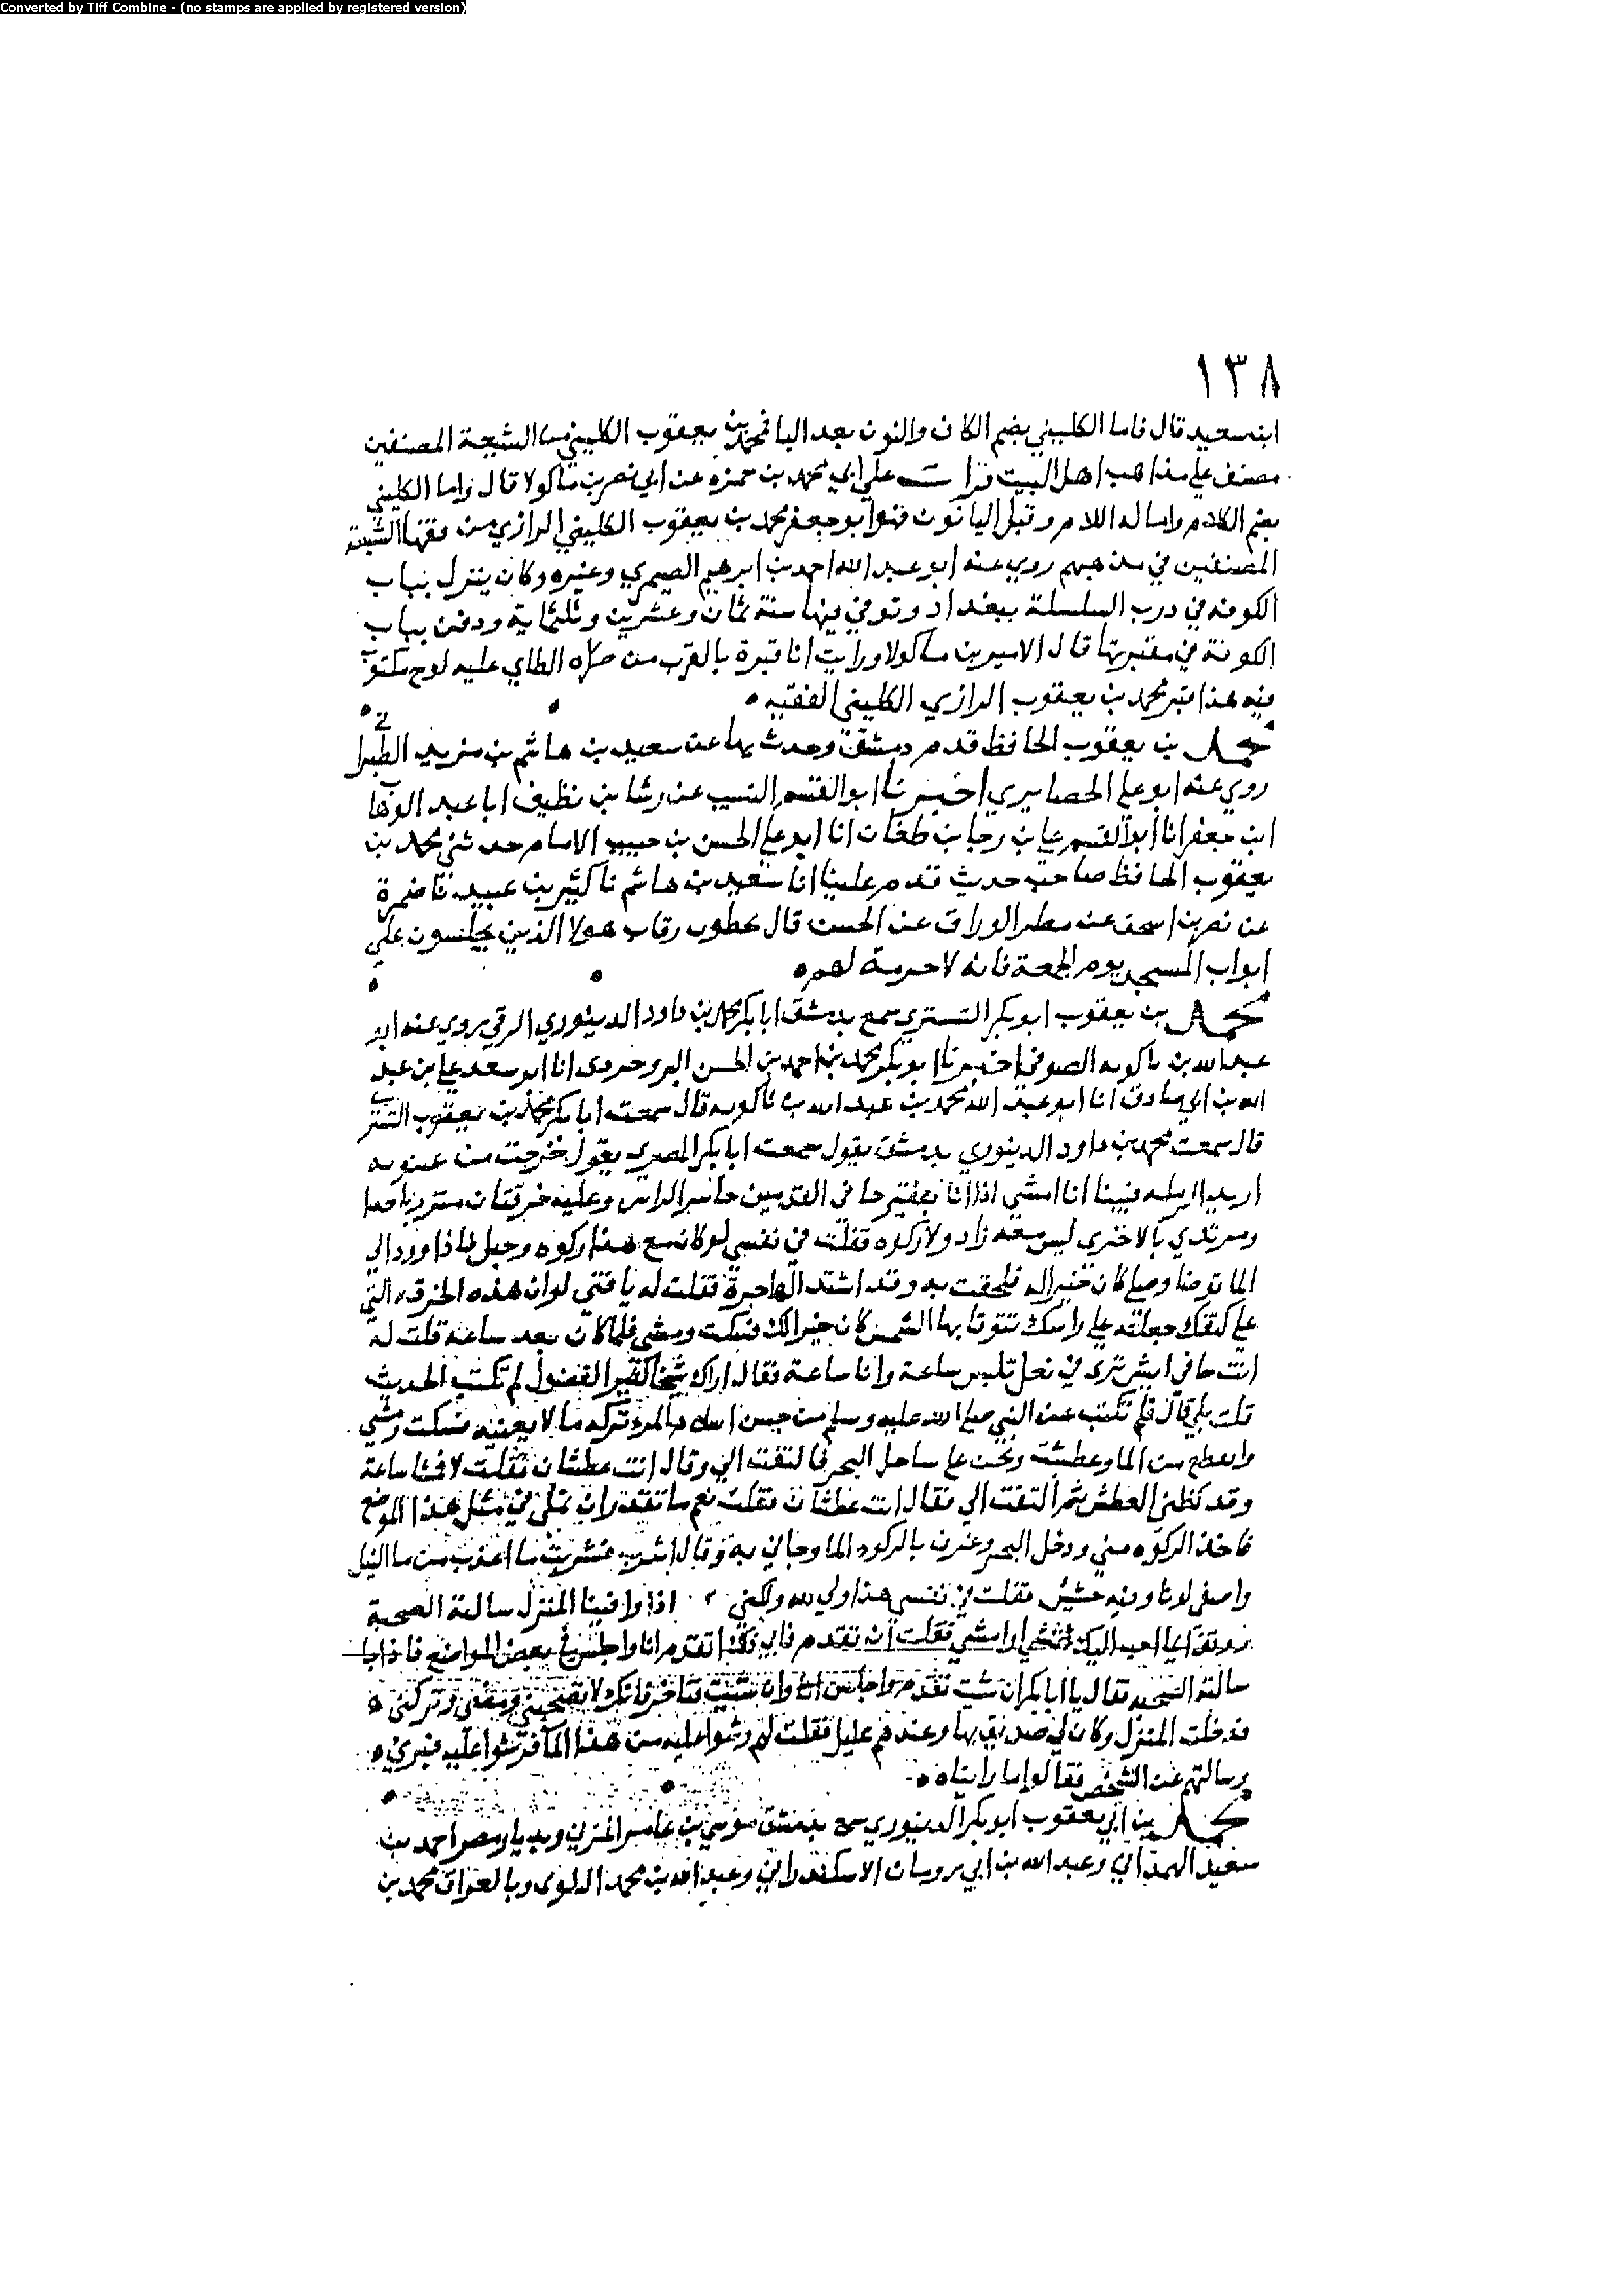 Converted by Tiff Combine - (no stamps are applied by registered version)
١٣٨
ابن سعيد قال فاما الكليني بضم الكاف والنون بعد اليا فمحمد بن يعقوب الكليني من الشيعة المصنفين
مصنف علي مذاهب اهل البيت قرات علي ابي محمد بن حمزه عن ابي نصر بن ماكولا قال واما الكليني
بضم الكاف وامالة اللام وقبل اليا نون فهو ابو جعفر محمد بن يعقوب الكليني الرازي من فقها الشيعة
المصنفين في مذهبهم روي عنه ابو عبد الله احمد بن ابرهيم الصيمري وغيره وكان ينزل بباب
الكوفه في درب السلسلة ببغداد وتوفي فيها سنة ثمان وعشرين وثلثماية ودفن بباب
الكوفة في مقبرتها قال الامير بن ماكولا ورايت انا قبره بالقرب من صراه الطاي عليه لوح مكتوب
فيه هذا قبر محمد بن يعقوب الرازي الكليني الفقيه
محمد بن يعقوب الحافظ قدم دمشق وحدث بها عن سعيد بن هاشم بن مزيد الطبراني
روي عنه ابو علي الحصايري اخبرنا ابو القسم النسيب عن رشا بن نظيف انا عبد الوهاب
ابن جعفر انا ابو القسم علي بن رجا بن طغان انا ابو علي الحسن بن حبيب الامام حدثني محمد بن
يعقوب الحافظ صاحب حديث قدم علينا انا سعيد بن هاشم نا كثير بن عبيد نا ضمرة
عن نصر بن اسحق عن مطر الوراق عن الحسن قال تخطوب رقاب هولا الذين يجلسون علي
ابواب المسجد يوم الجمعة فانه لا حرمة لهم
محمد بن يعقوب ابو بكر التستري سمع بدمشق ابا بكر محمد بن داود الدينوري الرقي روي عنه ابو
عبد الله بن باكويه الصوفي اخبرنا ابو بكر محمد بن احمد بن الحسن البروجردي انا ابو سعد علي بن عبد
الله بن ابي صادق انا ابو عبد الله محمد بن عبد الله بن باكويه قال سمعت ابا بكر محمد بن يعقوب التستري
قال سمعت محمد بن داود الدينوري بدمشق يقول سمعت ابا بكر المصري يقول خرجت من عينونه
اريد الرمله فبينا انا امشي اذا انا بفقير حافي القدمين حاسر الراس وعليه خرقتان متزر باحداهما
ومرتدي بالاخرى ليس معه زاد ولا ركوه فقلت في نفسي لو كان مع هذا ركوه وحبل فاذا ورد الي
الما توضا وصلي كان خيرا له فلحقت به وقد اشتد الهاجرة فقلت له يا فتى لو ان هذه الخرقه التي
علي كتفك جعلته علي راسك تتوقا بها الشمس كان خيرا لك فسكت ومشي فلما كان بعد ساعة قلت له
انت حافي ايش تري في نعل تلبس ساعة وانا ساعة فقال اراك شيخا كثير الفضول لم تكتب الحديث
قلت بلي قال فلم تكتب عن النبي صلى الله عليه وسلم من حسن اسلام المرء تركه ما لا يعنيه فسكت ومشي
وانقطع من الما وعطشت ونحن علي ساحل البحر فالتفت الي وقال انت عطشان فقلت لا فمشا ساعة
وقد كظني العطش ثم التفت الي فقال انت عطشان فقلت نعم ما تقدر ان تعمل في مثل هذا الموضع
فاخذ الركوه مني ودخل البحر وغرف بالركوه الما وجاني به وقال اشرب فشربت ما اعذب من ما النيل
واصفي لونا وفيه حشيش فقلت في نفسي هذا ولي لله ولكني اذا وافينا المنزل سالته الصحبة
فوقف ايما احب اليك تمشي او امشي فقلت ان تقدم فاتني ولكن اتقدم انا واجلس في بعض المواضع فاذا جا
سالته الصحبه فقال يا ابا بكر ان شيت تقدم واجلس انا وان شيت فتاخر فانك لا تصحبني ومضى وتركني
فدخلت المنزل وكان لي صديق بها وعندهم عليل فقلت لهم رشوا عليه من هذا الما فرشوا عليه فبرئ
وسالتهم عن الشخص فقالوا ما رايناه
محمد بن ابي يعقوب ابو بكر الدينوري سمع بدمشق موسي بن عامر المزني وبديار مصر احمد بن
سعيد الهمداني وعبد الله بن ابي رومان الاسكندراني وعبد الله بن محمد البلوي وبالعراق محمد بن